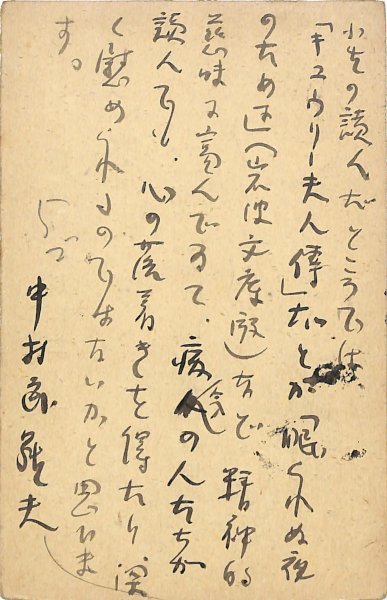 小生の讀んだところでは
「キユウリー夫人傳」だとか「眠られぬ夜
のために」(岩波文庫版)など 精神的
滋味に富んでゐて、の人たちが
讀んでも、心の落着きを得たり、深
く慰められるのではないかと思ひま
す。
中村武羅夫